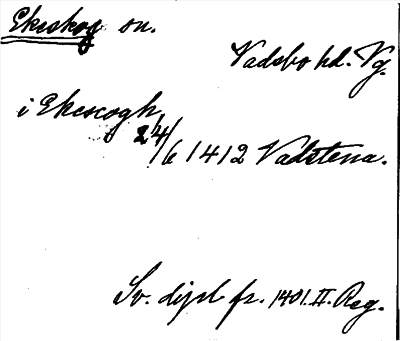 Ekeskog sn.
Vadsbo hd. Vg.
i Ekescogh
24/6 1412 Vadstena.
Sv. dipl fr. 1401. II. Reg.